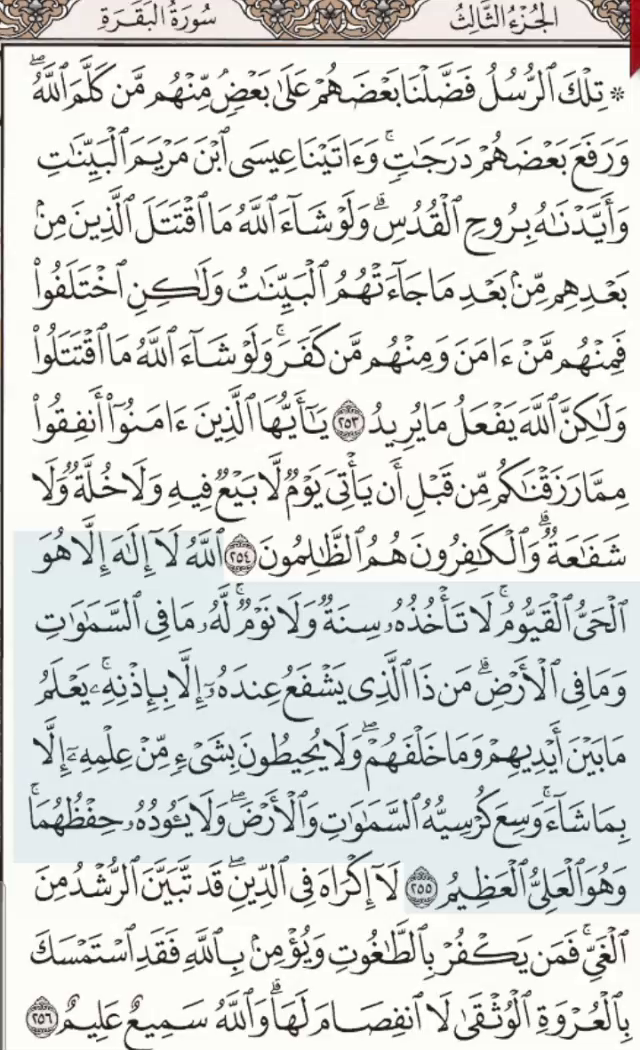 الجُزْءُ الثَّالِثُ سُورَةُ البَقَرَةِ
۞ تِلْكَ ٱلرُّسُلُ فَضَّلْنَا بَعْضَهُمْ عَلَىٰ بَعْضٖۘ مِّنْهُم مَّن كَلَّمَ ٱللَّهُۖ
وَرَفَعَ بَعْضَهُمْ دَرَجَٰتٖۚ وَءَاتَيْنَا عِيسَى ٱبْنَ مَرْيَمَ ٱلْبَيِّنَٰتِ
وَأَيَّدْنَٰهُ بِرُوحِ ٱلْقُدُسِۗ وَلَوْ شَآءَ ٱللَّهُ مَا ٱقْتَتَلَ ٱلَّذِينَ مِنۢ
بَعْدِهِم مِّنۢ بَعْدِ مَا جَآءَتْهُمُ ٱلْبَيِّنَٰتُ وَلَٰكِنِ ٱخْتَلَفُوا۟
فَمِنْهُم مَّنْ ءَامَنَ وَمِنْهُم مَّن كَفَرَۚ وَلَوْ شَآءَ ٱللَّهُ مَا ٱقْتَتَلُوا۟
وَلَٰكِنَّ ٱللَّهَ يَفْعَلُ مَا يُرِيدُ ٢٥٣ يَٰٓأَيُّهَا ٱلَّذِينَ ءَامَنُوٓا۟ أَنفِقُوا۟
مِمَّا رَزَقْنَٰكُم مِّن قَبْلِ أَن يَأْتِىَ يَوْمٌ لَّا بَيْعٌ فِيهِ وَلَا خُلَّةٌ وَلَا
شَفَٰعَةٌۗ وَٱلْكَٰفِرُونَ هُمُ ٱلظَّٰلِمُونَ ٢٥٤ ٱللَّهُ لَآ إِلَٰهَ إِلَّا هُوَ
ٱلْحَىُّ ٱلْقَيُّومُۚ لَا تَأْخُذُهُۥ سِنَةٌ وَلَا نَوْمٌۚ لَّهُۥ مَا فِى ٱلسَّمَٰوَٰتِ
وَمَا فِى ٱلْأَرْضِۗ مَن ذَا ٱلَّذِى يَشْفَعُ عِندَهُۥٓ إِلَّا بِإِذْنِهِۦۚ يَعْلَمُ
مَا بَيْنَ أَيْدِيهِمْ وَمَا خَلْفَهُمْۖ وَلَا يُحِيطُونَ بِشَىْءٍ مِّنْ عِلْمِهِۦٓ إِلَّا
بِمَا شَآءَۚ وَسِعَ كُرْسِيُّهُ ٱلسَّمَٰوَٰتِ وَٱلْأَرْضَۖ وَلَا يَـُٔودُهُۥ حِفْظُهُمَاۚ
وَهُوَ ٱلْعَلِىُّ ٱلْعَظِيمُ ٢٥٥ لَآ إِكْرَاهَ فِى ٱلدِّينِۖ قَد تَّبَيَّنَ ٱلرُّشْدُ مِنَ
ٱلْغَىِّۚ فَمَن يَكْفُرْ بِٱلطَّٰغُوتِ وَيُؤْمِنۢ بِٱللَّهِ فَقَدِ ٱسْتَمْسَكَ
بِٱلْعُرْوَةِ ٱلْوُثْقَىٰ لَا ٱنفِصَامَ لَهَاۗ وَٱللَّهُ سَمِيعٌ عَلِيمٌ ٢٥٦